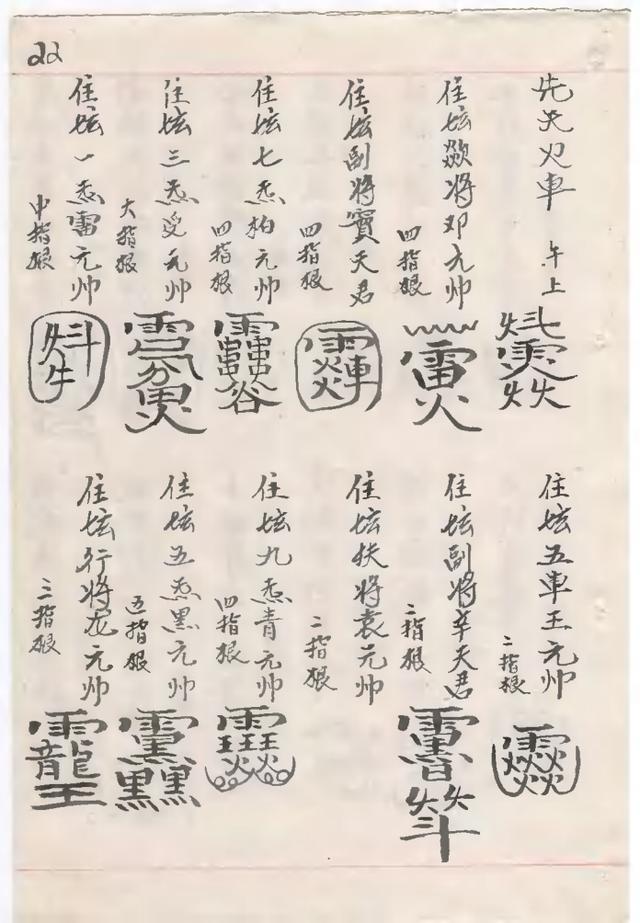 22
先天火車 午上
住坛歘将邓元帅 四指根
住坛副将竇天君 四指根
住坛七炁柏元帅 四指根
住坛三炁受元帅 大指根
住坛一炁雷元帅 中指根
住坛五車王元帅 二指根
住坛副将辛天君 二指根
住坛扶将袁元帅 二指根
住坛九炁青元帅 四指根
住坛五炁黑元帅 五指根
住坛行将龙元帅 三指根